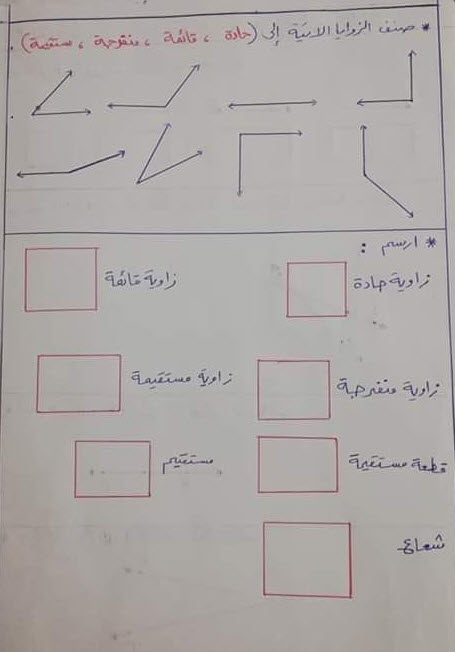 * صنف الزوايا الاتية إلى (حادة ، قائمة ، منفرجة ، مستقيمة)
* ارسم :
زاوية حادة
زاوية قائمة
زاوية منفرجة
زاوية مستقيمة
قطعة مستقيمة
مستقيم
شعاع